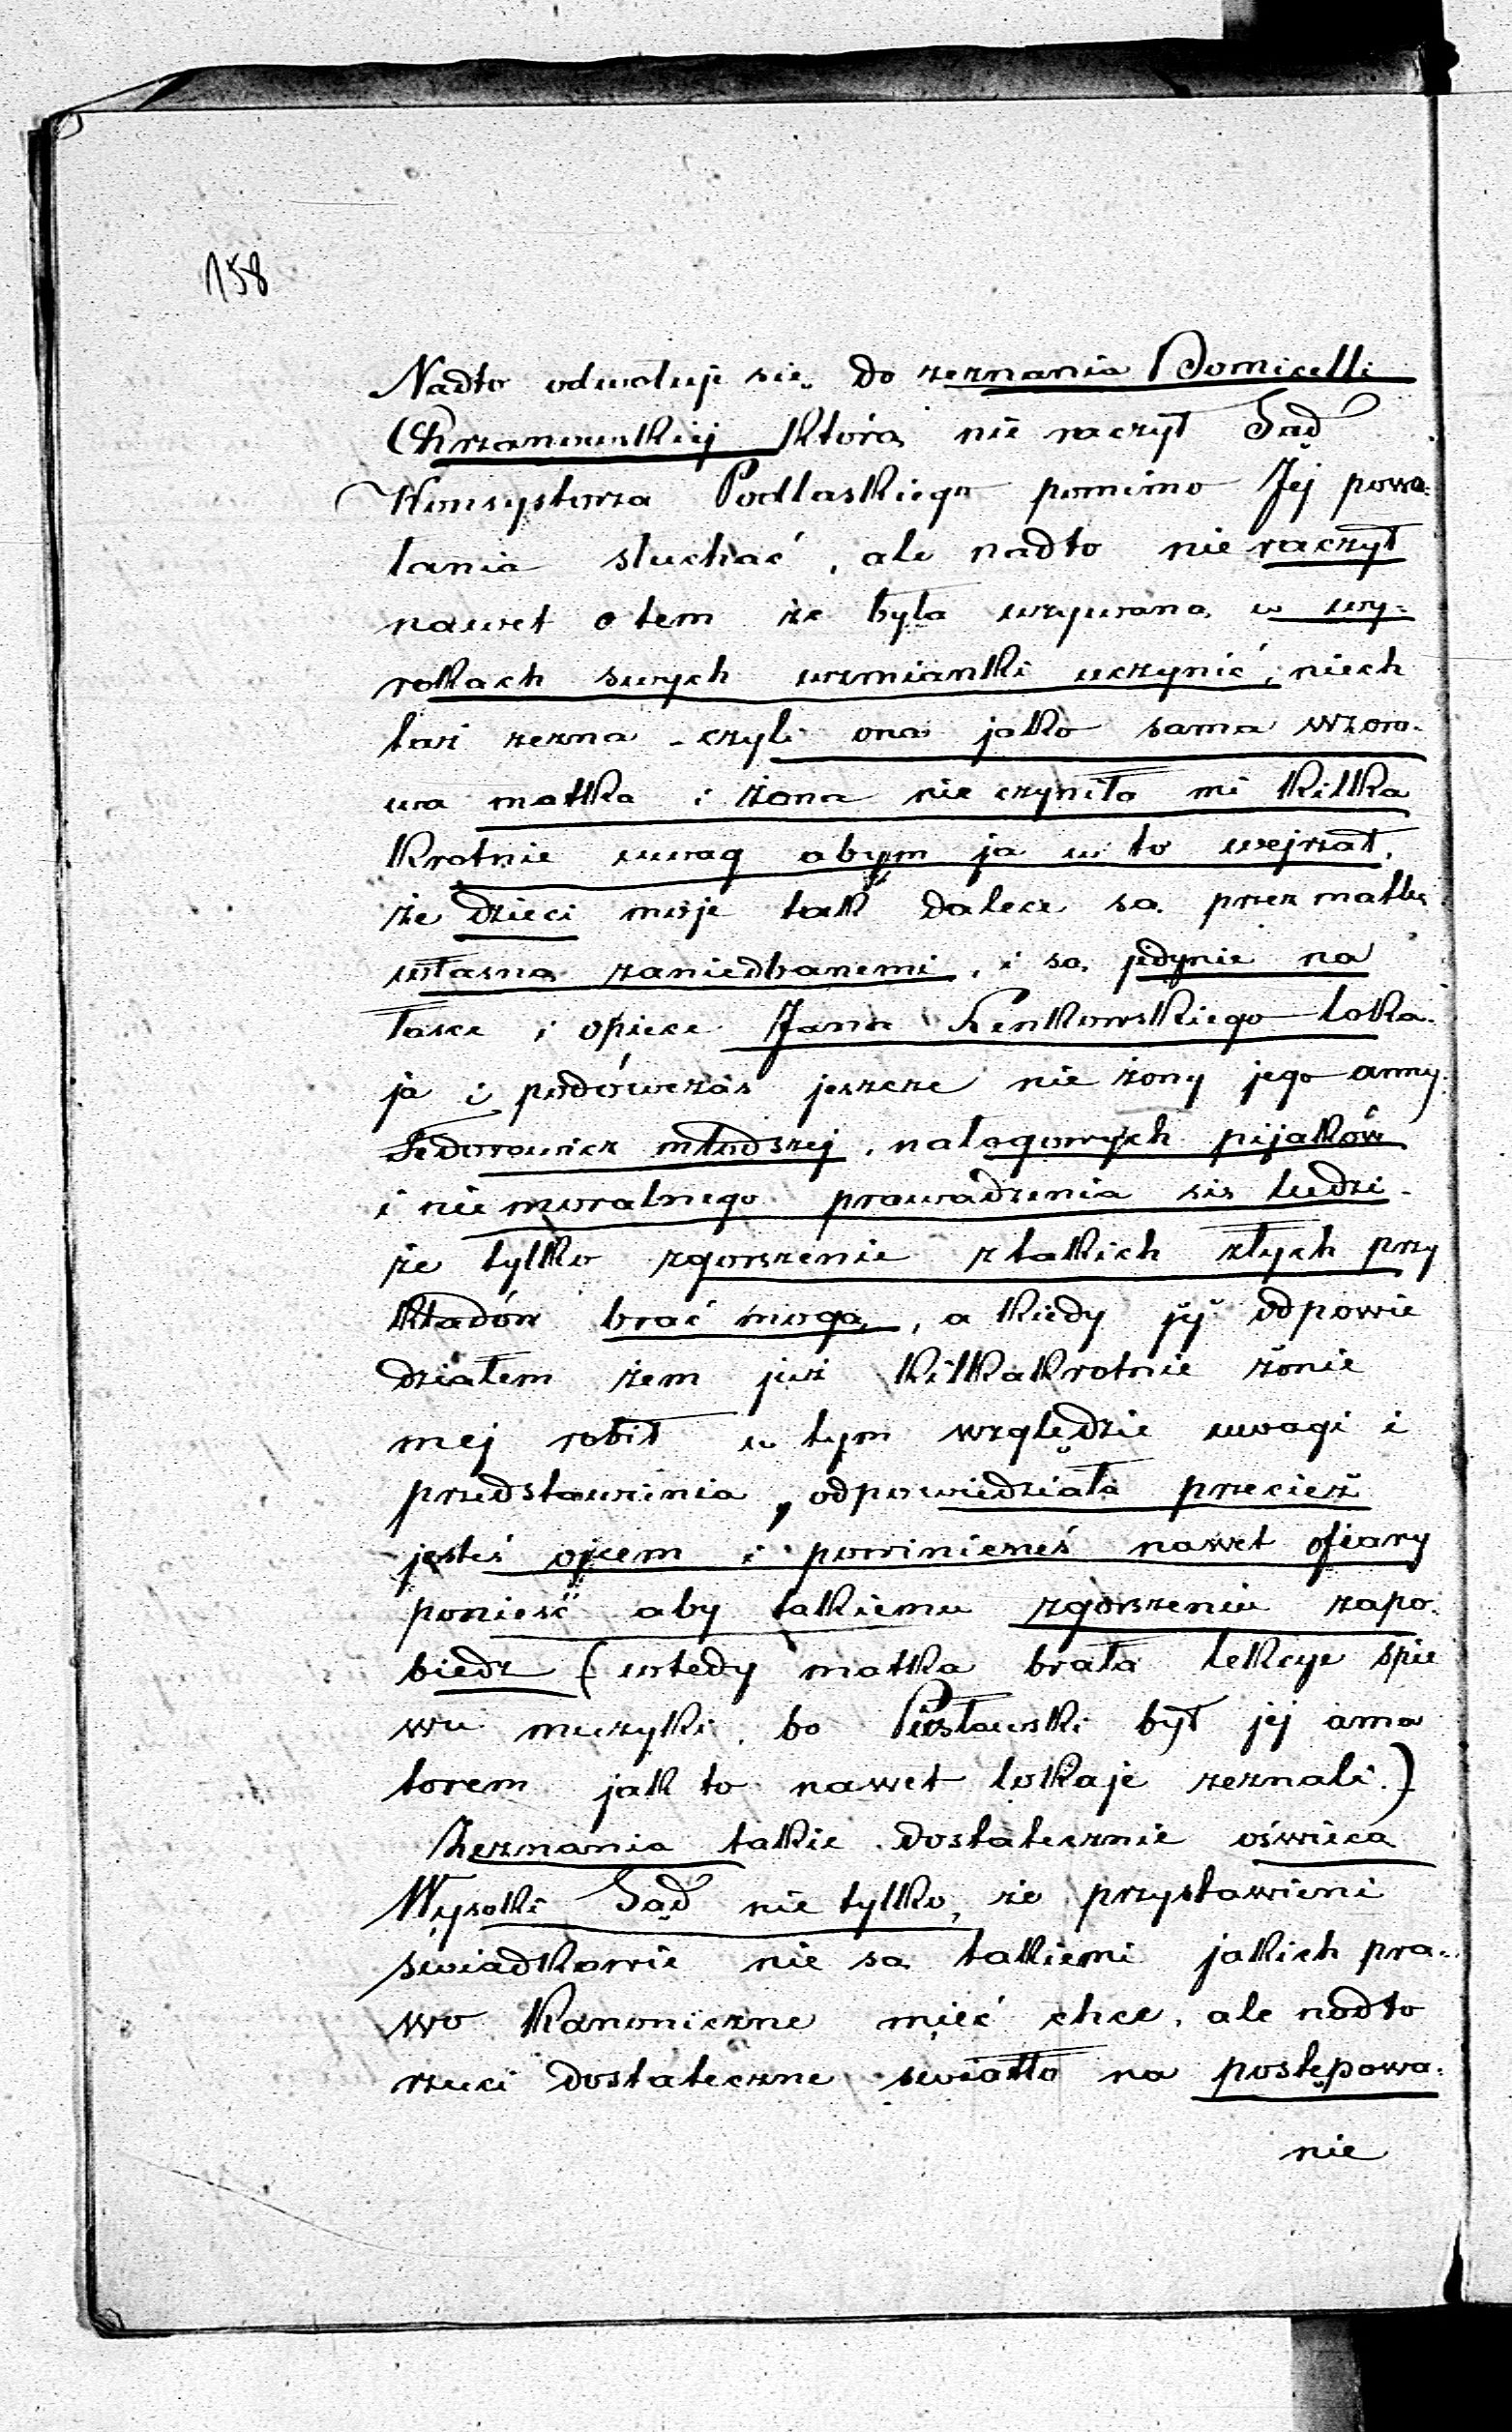 158
Nadto odwołuje się do zeznania Domicelli
Chrzanowskiej którą nie raczył Sąd
Konsystorza Podlaskiego pomimo Jej powo-
łania słuchać, ale nadto nie raczył
nawet o tem że była wzywaną w wy-
rokach swych wzmianki uczynić, niech
taż zezna - czyli ona jako sama wzoro-
wa matka i żona nie czyniła mi kilka
krotnie uwag abym ja w to wejrzał,
że dzieci moje tak dalece są przez matkę
własną zaniedbanemi, i są jedynie na
łasce i opiece Jana Lenkowskiego loka-
ja i podówczas jeszcze nie żony jego anny
Fedorowicz młodszej, nałogowych pijaków
i nie moralnego prowadzenia się ludzi -
że tylko zgorszenie z takich złych przy
kładów brać mogą, a kiedy jej odpowie
działem żem już kilkakrotnie żonie
mej robił w tym względzie uwagi i
przedstawienia, odpowiedziała przecież
jesteś ojcem i powinieneś nawet ofiary
ponieść aby takiemu zgorszeniu zapo-
biedz (wtedy matka brała lekcye śpie
wu muzyki, bo Pusłowski był jej ama
torem jak to nawet lokaje zeznali.)
Zeznania takie dostatecznie oświecą
Wysoki Sąd nie tylko, że przystawieni
świadkowie nie są takiemi jakich pra-
wo Kanoniczne mieć chce, ale nadto
rzuci dostateczne światło na postępowa-
nie